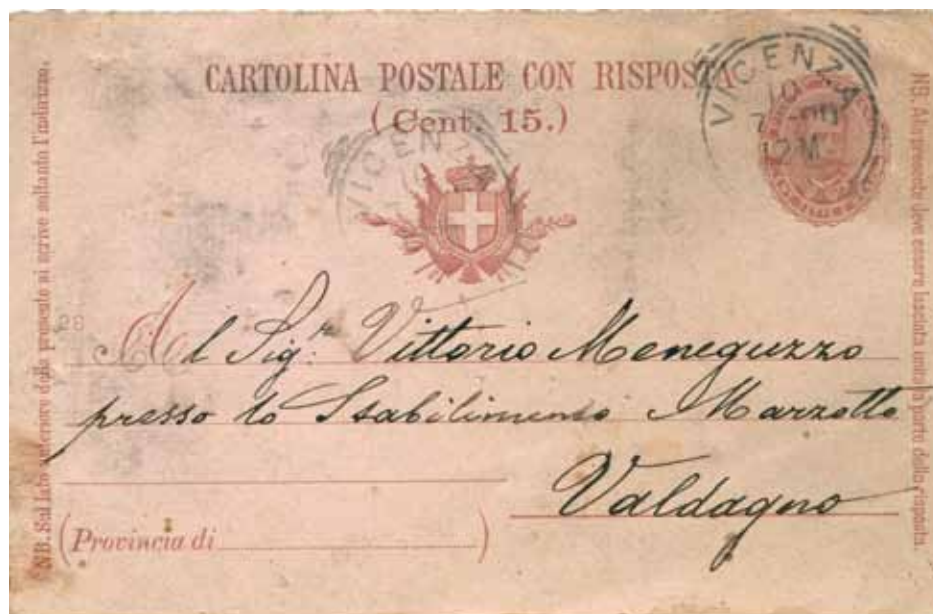 CARTOLINA POSTALE CON RISPOSTA
(Cent. 15.)
VICENZA
10
12M
VICENZ
NB. Sul lato anteriore della presente si scrive soltanto l'indirizzo.
NB. Alla presente deve essere lasciata unita la parte della risposta.
28
Al Sigr. Vittorio Meneguzzo
presso lo Stabilimento Marzotto
Valdagno
(Provincia di )